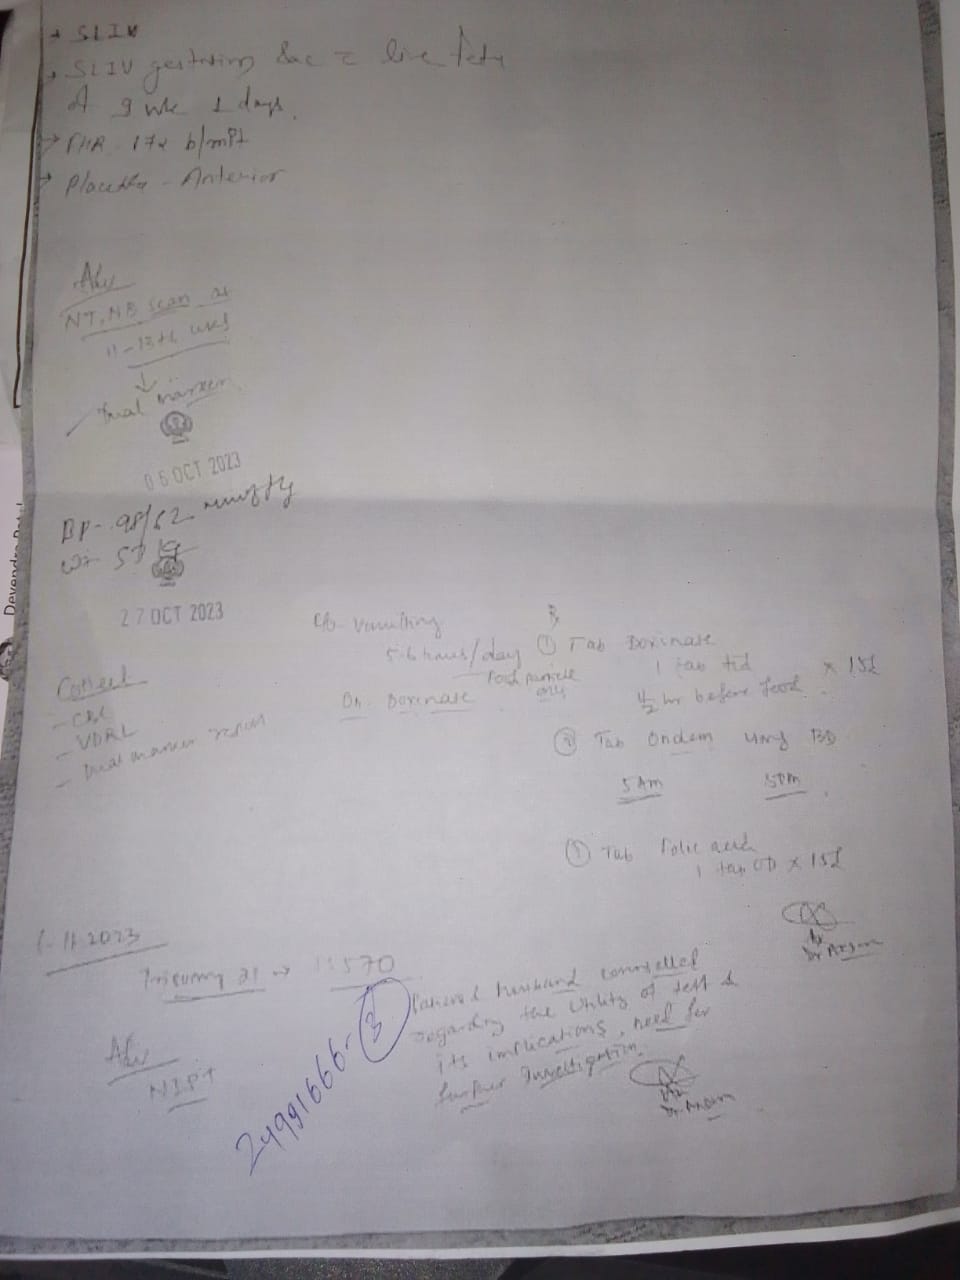 SLIU
SLIU gestating sac c live fetus
A 9 wk 1 days.
FHR - 17 b/mpt
Placenta - Anterior
Adv
NT, NB scan at
11-13+6 wks
↓
Dual marker
06 OCT 2023
BP - 98/62 mmofHg
wt 57
27 OCT 2023
Collect
- CBC
- VDRL
- Dual marker report
C/o - vomiting
5-6 /day
Food particle
only
On Doxinate
Rx
① Tab Doxinate
1 tab tid x 15d
1/2 hr before food
② Tab Ondem 4mg BD
5 AM 5 PM
③ Tab Folic acid
1 tab OD x 15d
Dr
1-11-2023
Trisomy 21 → 1:570
Adv
NIPT
Patient & husband counselled
regarding the utility of test &
its implications, need for
further investigation.
Dr
24991666-③
Devendra